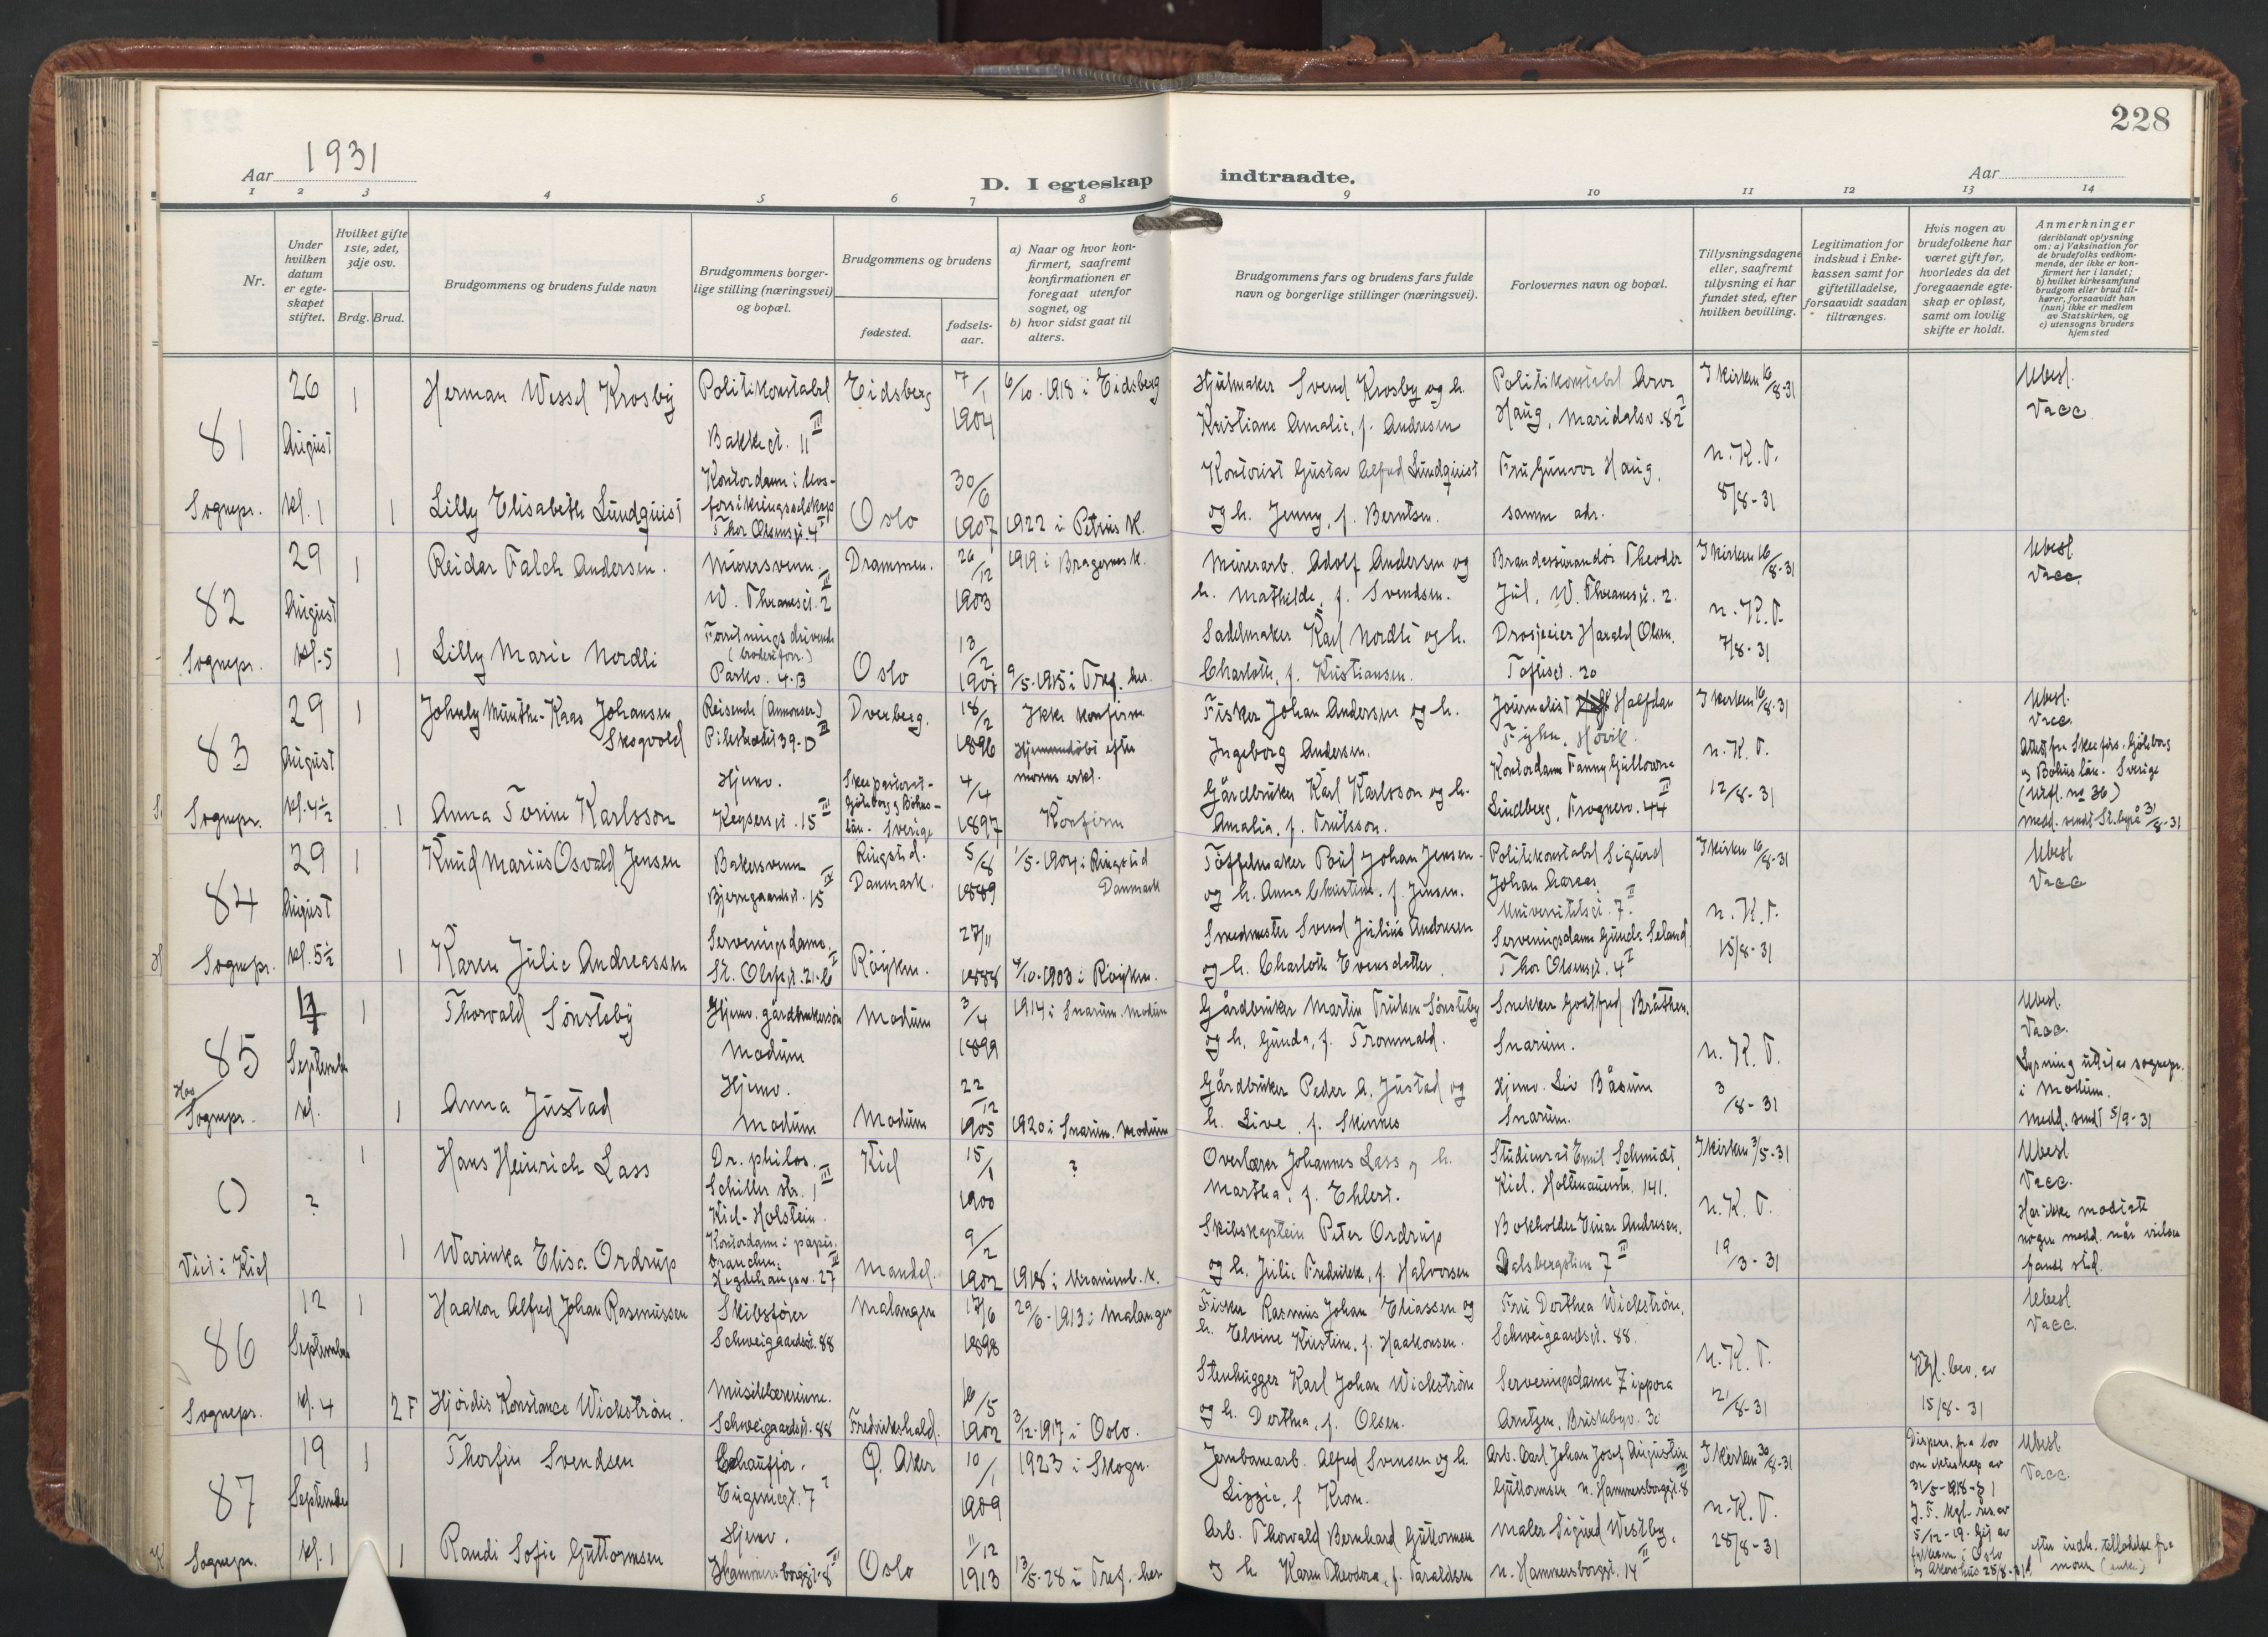 228
1931
Aar
D. I egteskap indtraadte.
Aar
1 2 3 4 5 6 7 8 9 10 11 12 13 14
Nr.
Under hvilken datum er egteskapet stiftet.
Hvilket gifte 1ste, 2det, 3dje osv.
Brdg. Brud.
Brudgommens og brudens fulde navn
Brudgommens borgerlige stilling (næringsvei) og bopæl.
Brudgommens og brudens
fødested.
fødselsaar.
a) Naar og hvor konfirmert, saafremt konfirmationen er foregaat utenfor sognet, og
b) hvor sidst gaat til alters.
Brudgommens fars og brudens fars fulde navn og borgerlige stillinger (næringsvei).
Forlovernes navn og bopæl.
Tillysningsdagene eller, saafremt tillysning ei har fundet sted, efter hvilken bevilling.
Legitimation for indskud i Enkekassen samt for giftetilladelse, forsaavidt saadan tiltrænges.
Hvis nogen av brudefolkene har været gift før, hvorledes da det foregaaende egteskap er opløst, samt om lovlig skifte er holdt.
Anmerkninger
(deriblandt oplysning om: a) Vaksination for de brudefolks vedkommende, der ikke er konfirmert her i landet; b) hvilket kirkesamfund brudgom eller brud tilhører, forsaavidt han (hun) ikke er medlem av Statskirken, og c) utensogns bruders hjemsted
81 Sognepr.
26 August kl. 1
1 Herman Wessel Krosby
Politikonstabel Bakkegt. 11 III
Eidsberg 7/1 1904
6/10-1918 i Eidsberg
Hjulmaker Svend Krosby og h. Kristiane Amalie, f. Andresen
Politikonstabel Arvr Haug, Maridalsv. 82
I kirken 16/8-31
n. K. T.
8/8-31
Ubesl.
Vacc.
1 Lilly Elisabeth Lundquist
Kontordame i forsikringsselskap Thor Olsensgt. 4 I
Oslo 30/6 1907
1922 i Petrus K.
Kontorist Gustav Alfred Lundquist og h. Jenny, f. Berntsen.
Fru Gunvor Haug, samme adr.
82 Sognepr.
29 August kl. 5
1 Reidar Falch Andersen.
Murersvenn. W. Thranesgt. 2 III
Drammen. 26/12 1903
1919 i Bragernes k.
Murerarb. Adolf Andersen og h. Mathilde, f. Svendsen.
Brandassurandør Theodor Jul, W. Thranesgt. 2.
I kirken 16/8-31
n. K. T.
7/8-31
Ubesl
Vacc.
1 Lilly Marie Nordli
Forretningsdrivende (broderiforr.) Parkv. 4-B
Oslo 13/2 1901
9/5-1915 i Tref. her.
Sadelmaker Karl Nordli og h. Charlotte, f. Kristiansen.
Drosjeeier Harald Olsen. Toftesgt. 20
83 Sognepr.
29 August kl. 4½
1 Johnly Munthe-Kaas Johansen Skogvold
Reisende (Annonser) Pilestredet 39-D III
Dverberg. 18/2 1896
Ikke konfirm Hjemmedøbt efter morens erkl.
Fisker Johan Andersen og h. Ingeborg Andersen.
Journalist Halfdan Høvik.
I kirken 16/8-31
n. K. T.
12/8-31
Ubesl.
Vacc.
Attest fra Skee førs. Göteborg og Bohus län. Sverige
Medd. sendt St. byrå 31/8-31
1 Anna Torine Karlsson
Hjemv. Keysersgt. 15 III
Skee pastorat- Göteborg og Bohuslän. Sverige 4/4 1897
Konfirm
Gårdbruker Karl Karlsson og h. Amalia, f. Trulsson.
Kontordame Fanny Lindberg, Frognerv. 44 II
84 Sognepr.
29 August kl. 5½
1 Knud Marius Osvald Jensen
Bakersvenn Bjerregaardsgt. 15 IV
Ringsted. Danmark. 5/8 1889
1/5-1904 i Ringsted Danmark
Tøffelmaker Johan Jensen og h. Anna Christine, f. Jensen.
Politikonstabel Sigurd Johan Universitetsgt. 7 II
I kirken 16/8-31
n. K. T.
15/8-31
Ubesl
Vacc
1 Karen Julie Andreassen
Serveringsdame. St. Olafsgt. 21-C I
Røyken. 27/11 1888
4/10-1903 i Røyken.
Smedmester Svend Julius Andresen og h. Charlotte Evensdatter.
Serveringsdame Gunda Seland Thor Olsensgt. 4 I
85 Hos Sognepr.
September kl.
1 Thorvald Sønsteby
Hjemv. gårdbrukersøn Modum
Modum 3/4 1899
1914 i Snarum. Modum
Gårdbruker Martin Trulsen Sønsteby og h. Gunda, f. Trommald.
Snekker Godtfred Bråthen, Snarum.
n. K. T.
3/8-31
Ubesl.
Vacc.
Lysning uttat av sognepr. i Modum.
Medd. sendt 5/9-31
1 Anna Justad
Hjemv. Modum
Modum 22/12 1905
1920 i Snarum. Modum
Gårdbruker Peder A. Justad og h. Live, f. Skinnes
Hjemv. Liv Båsum Snarum.
() Viet i Kiel
?
1 Hans Heinrich Lass
Dr. philos. Schiller str. 1 III Kiel-Holstein.
Kiel 15/1 1900
?
Overlærer Johannes Lass og h. Martha, f. Ehlert.
Studienrat Emil Schmidt, Kiel. Holtenauerstr. 141.
I kirken 3/5-31
n. K. T.
19/3-31
Ubesl
Vacc.
Har ikke modtatt nogen medd. når vielsen fandt sted.
1 Warinka Elisa Ordrup
Kontordame i papirbranchen. Hegdehaugsv. 27 III
Mandal. 9/2 1902
1918 i Uranienb. k.
Skibskaptein Peter Ordrup og h. Julie Fredrikke, f. Halvorsen
Bokholder Einar Andresen, Dalsbergstien 7 III
86 Sognepr.
12 September kl. 4
1 Haakon Alfred Johan Rasmussen
Skibsfører Schweigaardsgt. 88
Malangen 17/6 1898
29/6-1913 i Malangen
Fisker Rasmus Johan Eliassen og h. Elvine Kristine, f. Haakonsen.
Fru Dorthea Wickstrøm, Schweigaardsgt. 88.
n. K. T.
21/8-31
Kgl. bev. av 15/8-31
Ubesl
Vacc.
2 F Hjørdis Konstance Wickstrøm.
Musiklærerinne. Schweigaardsgt. 88
Fredrikshald. 16/5 1902
3/12-1917 i Oslo.
Stenhugger Karl Johan Wickstrøm og h. Dorthea, f. Olsen.
Serveringsdame Zippora Arntzen, Briskebyv. 30
87 Sognepr.
19 September kl. 1
1 Thorfin Svendsen
Chauffør. Eugeniesgt. 7
Ø. Aker 10/1 1909
1923 i Skogn.
Jernbanearb. Alfred Svensen og h. Lizzie, f. Krom.
Arb. Carl Johan Josef Augustin Guttormsen n. Hammersborggt. 8 II
I kirken 30/8-31
n. K. T.
28/8-31
Dispens. fra lov om ekteskap av 31/5-1918
Ubesl
Vacc.
1 Randi Sofie Guttormsen
Hjemv. Hammersborggt. 8 II
Oslo 11/12 1913
13/5-28 i Tref. her
Arb. Thorvald Bernhard Guttormsen og h Karen Theodora, f. Taraldsen
Maler Sigurd Westby, n. Hammersborggt. 14 II
efter indh. tilladelse fra moren (enke)